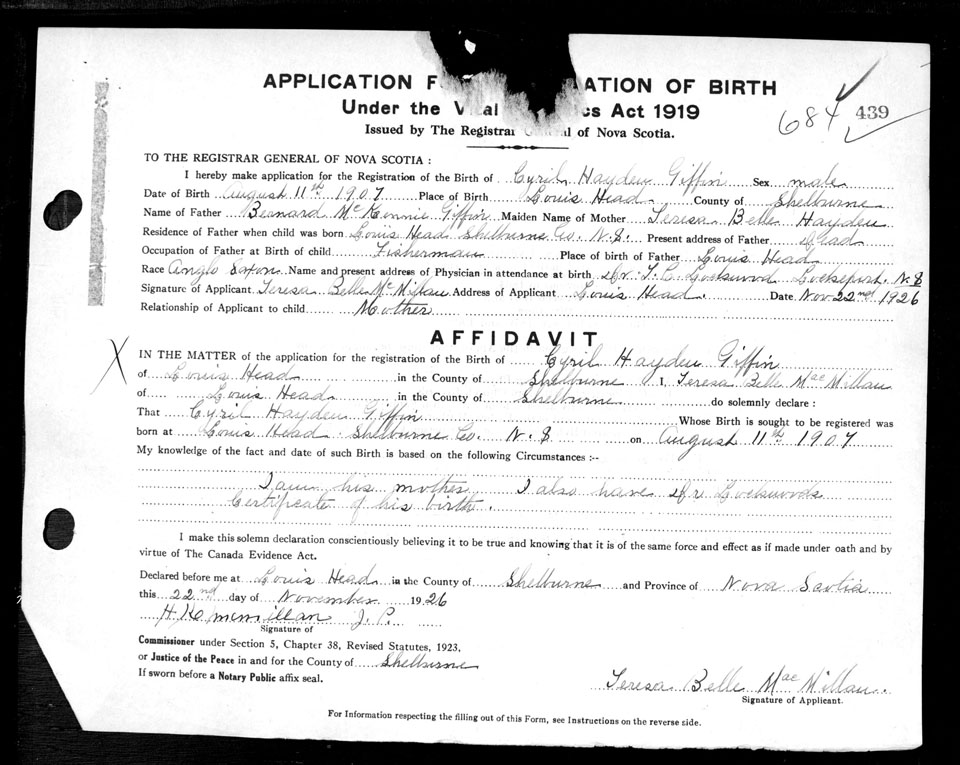 APPLICATION F ATION OF BIRTH
Under the V al cs Act 1919
684 439
Issued by The Registrar G al of Nova Scotia.
TO THE REGISTRAR GENERAL OF NOVA SCOTIA :
I hereby make application for the Registration of the Birth of Cyril Hayden Giffin Sex male
Date of Birth August 11th 1907 Place of Birth Louis Head County of Shelburne
Name of Father Bernard McKennie Giffin Maiden Name of Mother Teresa Belle Hayden
Residence of Father when child was born Louis Head Shelburne Co. N.S. Present address of Father dead
Occupation of Father at Birth of child Fisherman Place of birth of Father Louis Head
Race Anglo Saxon Name and present address of Physician in attendance at birth Dr. Lockwood Lockeport. N.S
Signature of Applicant Teresa Belle McMillan Address of Applicant Louis Head. Date Nov 22nd 1926
Relationship of Applicant to child Mother
AFFIDAVIT
X
IN THE MATTER of the application for the registration of the Birth of Cyril Hayden Giffin
of Louis Head in the County of Shelburne I, Teresa Belle MacMillan
of Louis Head in the County of Shelburne do solemnly declare :
That Cyril Hayden Giffin Whose Birth is sought to be registered was
born at Louis Head. Shelburne Co. N.S on August 11th 1907
My knowledge of the fact and date of such Birth is based on the following Circumstances :--
I am his mother I also have Dr Lockwoods
Certificate of his birth.
I make this solemn declaration conscientiously believing it to be true and knowing that it is of the same force and effect as if made under oath and by
virtue of The Canada Evidence Act.
Declared before me at Louis Head in the County of Shelburne and Province of Nova Scotia
this 22nd day of November 1926
McMillan J.P.
Signature of
Commissioner under Section 5, Chapter 38, Revised Statutes, 1923,
or Justice of the Peace in and for the County of Shelburne
If sworn before a Notary Public affix seal.
Teresa Belle MacMillan.
Signature of Applicant.
For Information respecting the filling out of this Form, see Instructions on the reverse side.